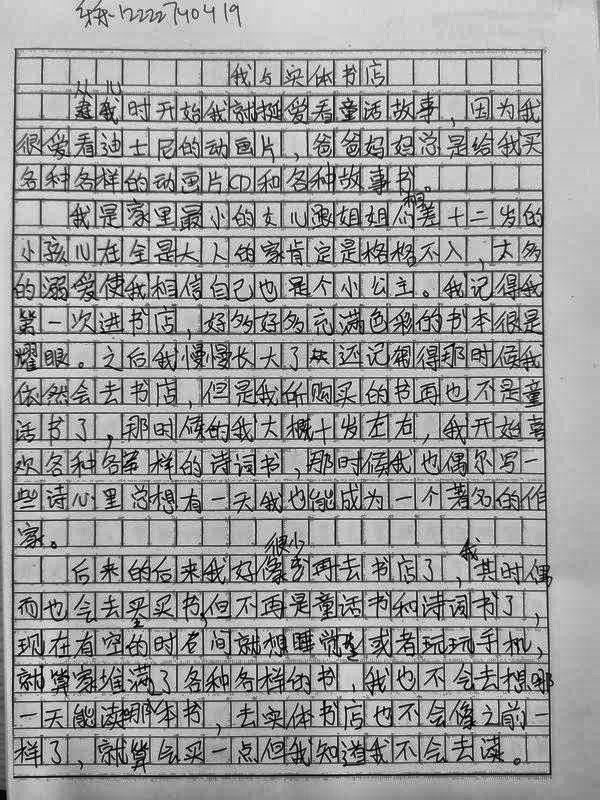 12222740419
我与实体书店
从小时开始我就挺爱看童话故事,因为我
很爱看迪士尼的动画片,爸爸妈妈总是给我买
各种各样的动画片CD和各种故事书。
我是家里最小的女儿跟姐姐们相差十二岁的
小孩儿在全是大人的家肯定是格格不入,太多
的溺爱使我相信自己也是个小公主。我记得我
第一次进书店,好多好多充满色彩的书本很是
耀眼。之后我慢慢长大了还记得那时候我
依然会去书店,但是我所购买的书再也不是童
话书了,那时候的我大概十岁左右,我开始喜
欢各种各样的诗词书,那时候我也偶尔写一
些诗心里总想有一天我也能成为一个著名的作
家。
后来的后来我好像很少再去书店了,我其时偶
而也会去买书,但不再是童话书和诗词书了,
现在有空的时间就想睡觉或者玩玩手机,
就算家堆满了各种各样的书,我也不会去想哪
一天能读那本书,去实体书店也不会像之前一
样了,就算会买一点但我知道我不会去读。